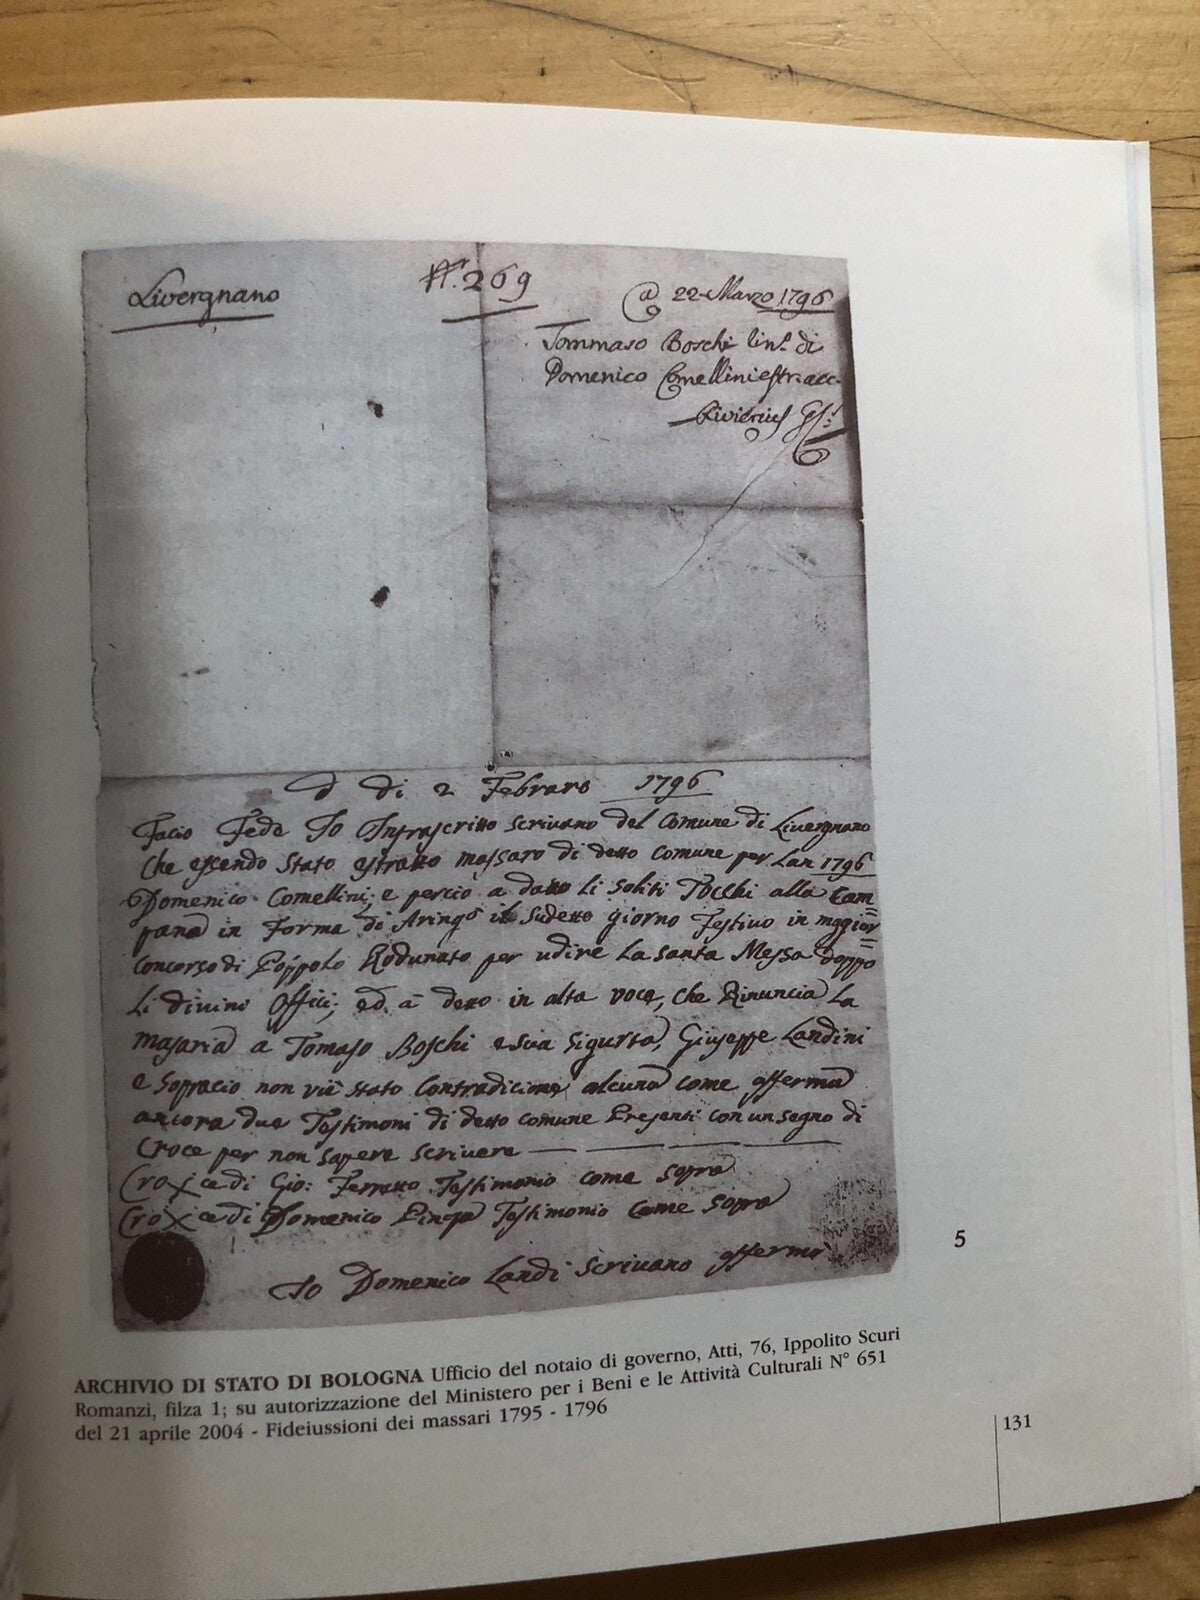 Livergnano
N.º 269
@ 22 Marzo 1796
Tommaso Boschi in l.º di
Domenico Comellini estrac.
A di 2 Febraro 1796
Facio Fede Io Infrascritto scrivano del Comune di Livergnano
che essendo stato estratto massaro di detto comune per lan 1796
Domenico Comellini, e perciò a dato li soliti Tocchi alla Cam=
pana in Forma di Aringo il sudetto giorno Festivo in magior=
concorso di Poppolo Radunato per udire la santa Messa doppo
Li divini offici, ed a detto in alta voce, che Rinuncia La
masaria a Tomaso Boschi e sua sigurta, Giuseppe Landini
e sopracio non viè stato Contradicione alcuna come afferma
ancora due Testimoni di detto comune Presenti con un segno di
Croce per non sapere scrivere
Cro X ce di Gio: Ferretto Testimonio come sopra
Cro X ce di Domenico Testimonio Come sopra
Io Domenico Landi scrivano affermo
5
ARCHIVIO DI STATO DI BOLOGNA Ufficio del notaio di governo, Atti, 76, Ippolito Scuri
Romanzi, filza 1; su autorizzazione del Ministero per i Beni e le Attività Culturali N° 651
del 21 aprile 2004 - Fideiussioni dei massari 1795 - 1796
131